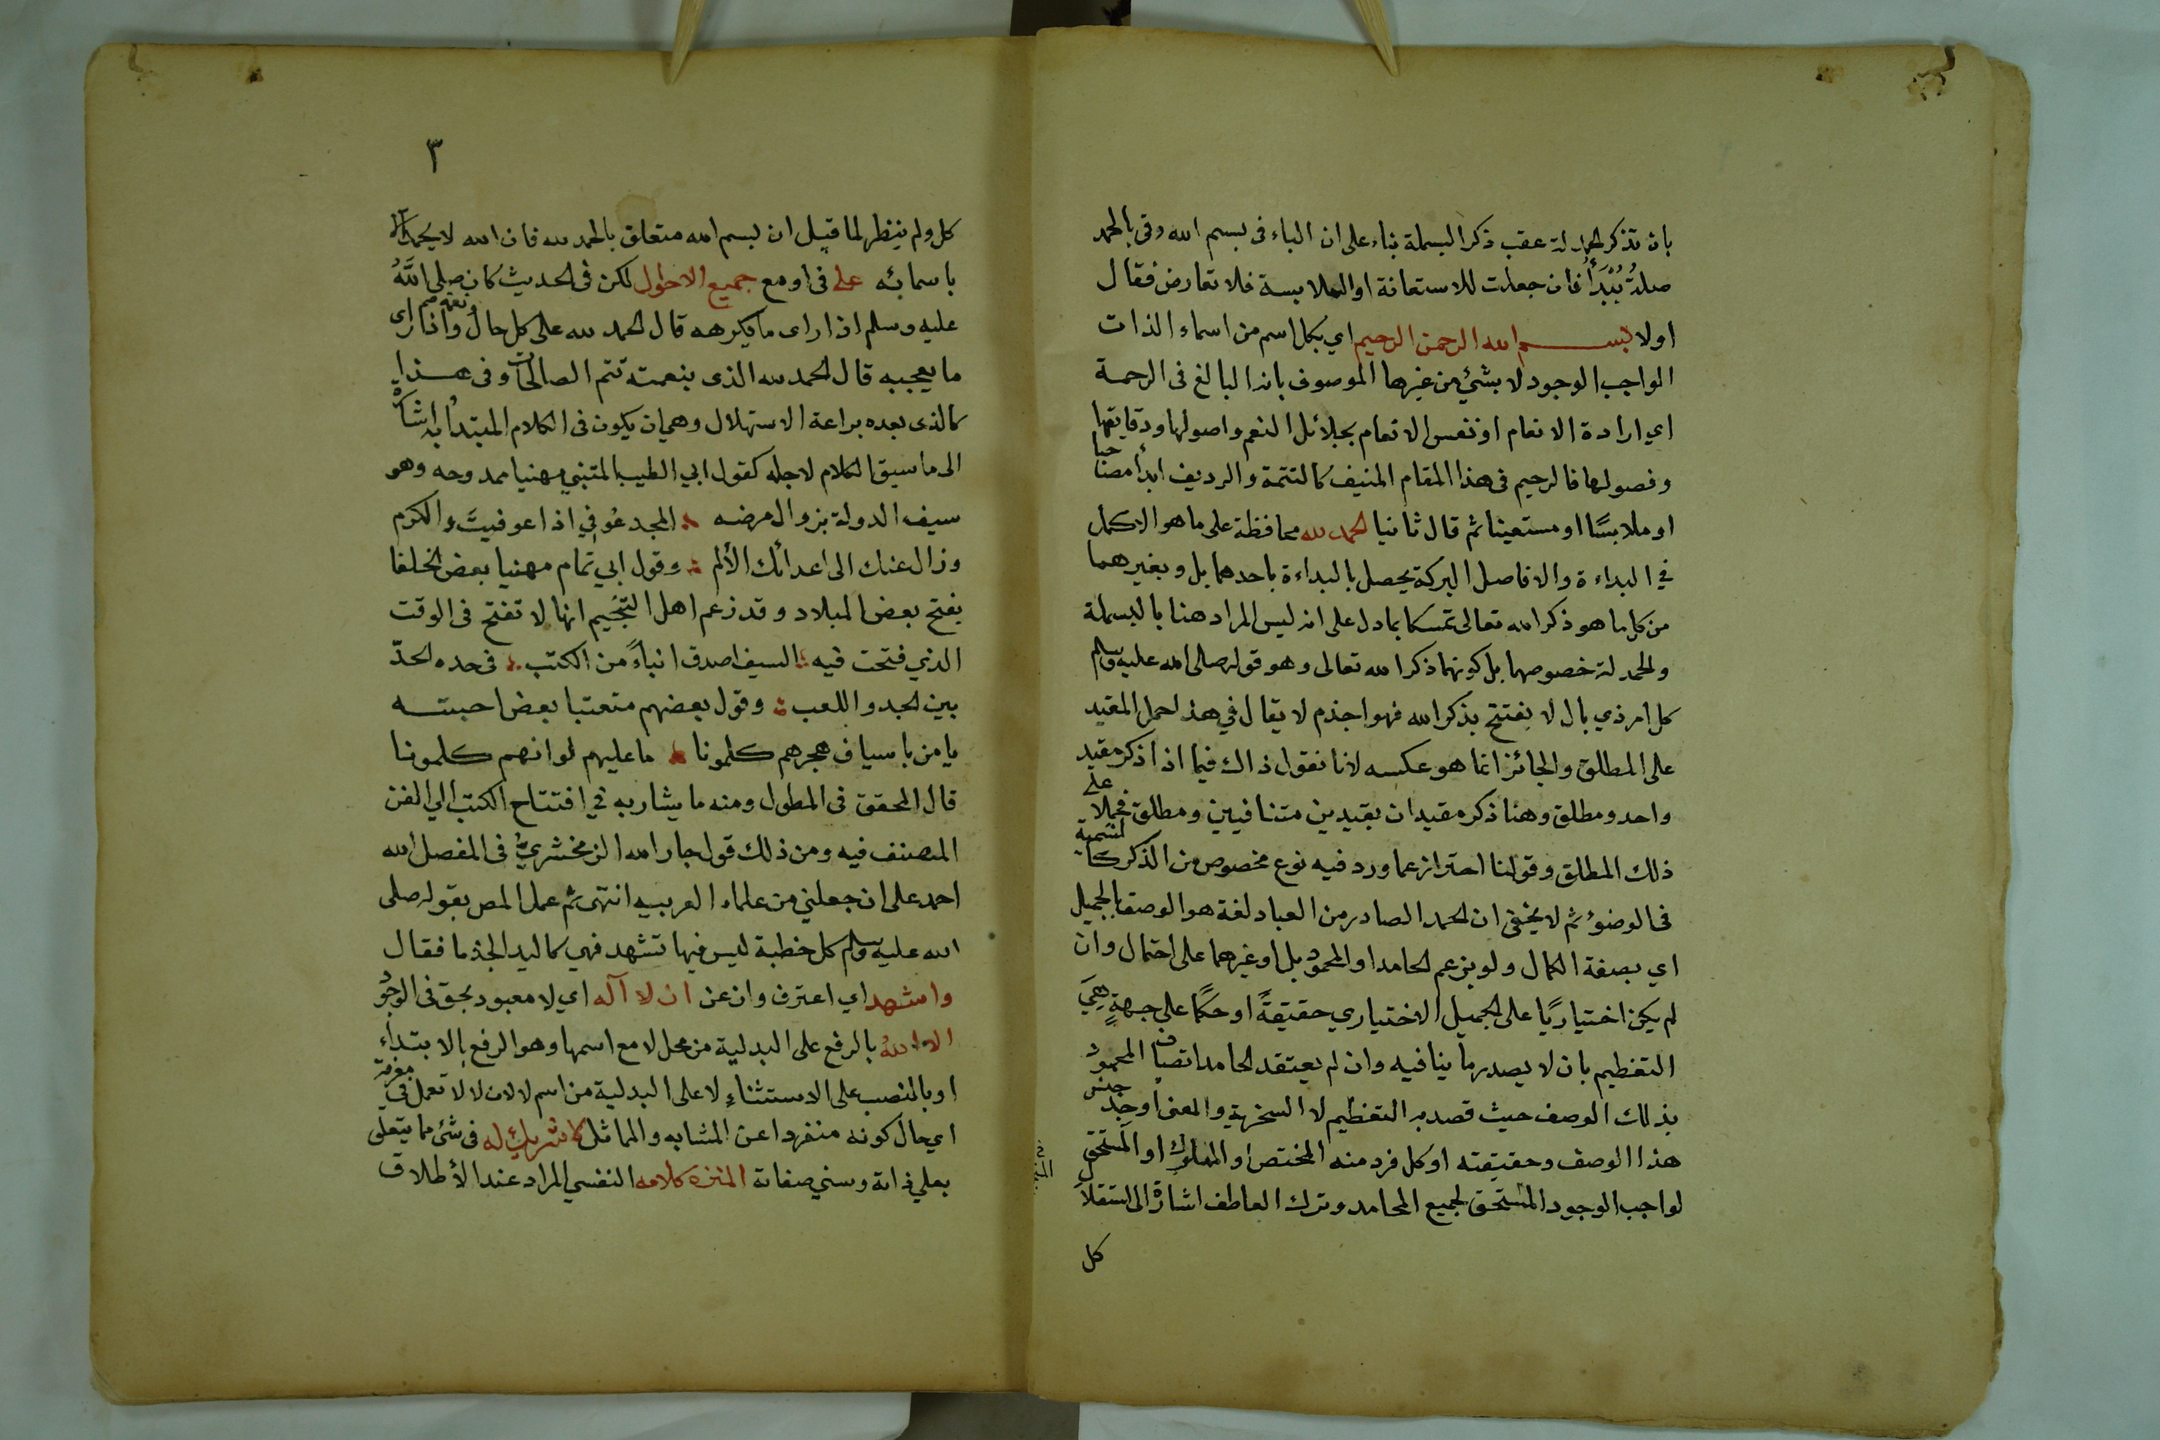 بان تذكر الحمدلة عقب ذكر البسملة بناء على ان الباء فى بسم الله وفى بالحمد
صلةُ يُبْدَأُ فان جعلت للاستعانة او الملابسة فلا تعارض فقال
اولا بسم الله الرحمن الرحيم اي بكل اسم من اسماء الذات
الواجب الوجود لا بشئ من غيرها الموصوف بانه البالغ فى الرحمة
اي ارادة الانعام او نفس الانعام بجلائل النعم واصولها ودقايقها
وفصولها فالرحيم فى هذا المقام المنيف كالتتمة والرديف ابدأ مصاحبا
او ملابسًا او مستعينا ثم قال ثانيا الحمد لله محافظة على ما هو الاكمل
في البداءة والا فاصل البركة يحصل بالبداءة باحدهما بل وبغيرهما
من كل ما هو ذكر الله تعالى تمسكا بما دل على انه ليس المراد هنا بالبسملة
والحمدلة خصوصهما بل كونهما ذكرا لله تعالى وهو قوله صلى الله عليه وسلم
كل امر ذي بال لا يفتتح بذكر الله فهو اجذم لا يقال في هذا حمل المقيد
على المطلق والجائز انما هو عكسه لانا نقول ذاك فيما اذا ذكر مقيد
واحد ومطلق وهنا ذكر مقيدان بقيدين متنافيين ومطلق فحملا على
ذلك المطلق وقولنا احتراز عما ورد فيه نوع مخصوص من الذكر كالتسمية
فى الوضوء ثم لا يخفى ان الحمد الصادر من العباد لغة هو الوصف بالجميل
اي بصفة الكمال ولو بزعم الحامد او المحمود بل او غيرهما على احتمال وان
لم يكن اختياريًا على الجميل الاختياري حقيقةً او حكمًا على جهةٍ هِيَ
التعظيم بان لا يصدر ما ينافيه وان لم يعتقد الحامد اتصاف المحمود
بذلك الوصف حيث قصد به التعظيم لا السخرية والمعنى اوجد جنس
هذا الوصف وحقيقته او كل فرد منه المختص او المملوك او المستحق
لواجب الوجود المستحق لجميع المحامد وترك العاطف اشارة الى استقلال
كل
٣
كل ولم ينظر لما قيل ان بسم الله متعلق بالحمد لله فان الله لا يحمد الا
باسمائه على فى او مع جميع الاحوال لكن فى الحديث كان صلى اللَّهُ
عليه وسلم اذا راى ما يكرهه قال الحمد لله على كل حال واذا راى
ما يعجبه قال الحمد لله الذى بنعمته تتم الصالحات وفى هذا
كالذى بعده براعة الاستهلال وهي ان يكون فى الكلام المبتدأ به اشارة
الى ما سيق الكلام لاجله كقول ابي الطيب المتنبي مهنيا ممدوحه وهو
سيف الدولة بزوال مرضه المجد عُوفي اذا عوفيتَ والكرم
وزال عنك الى اعدائك الألم وقول ابي تمام مهنيا بعض الخلفا
بفتح بعض البلاد وقد زعم اهل التنجيم انها لا تفتح فى الوقت
الذي فتحت فيه السيف اصدق انباءً من الكتب فى حده الحدّ
بين الجد واللعب وقول بعضهم متعتبا بعض احبته
يا من باسياف هجرهم كلمونا ما عليهم لو انهم كلمونا
قال المحقق فى المطول ومنه ما يشار به في افتتاح الكتب الي الفن
المصنف فيه ومن ذلك قول جار الله الزمخشريُّ فى المفصل الله
احمد على ان جعلني من علماء العربيه انتهى ثم عمل المص بقوله صلى
الله عليه وسلم كل خطبة ليس فيها تشهد فهي كاليد الجذما فقال
واشهد اي اعترف واذعن ان لا آله اي لا معبود بحق فى الوجود
الا اللهُ بالرفع على البدلية من محل لا مع اسمها وهو الرفع بالابتداء
او بالنصب على الاستثناءِ لا على البدلية من اسم لا لان لا لا تعمل في معرفة
اي حال كونه منفردا عن المشابه والمماثل لا شريك له فى شئ مما يتعلق
بعلي ذاتة وسني صفاتة المنزه كلامه النفسي المراد عند الأطلاق